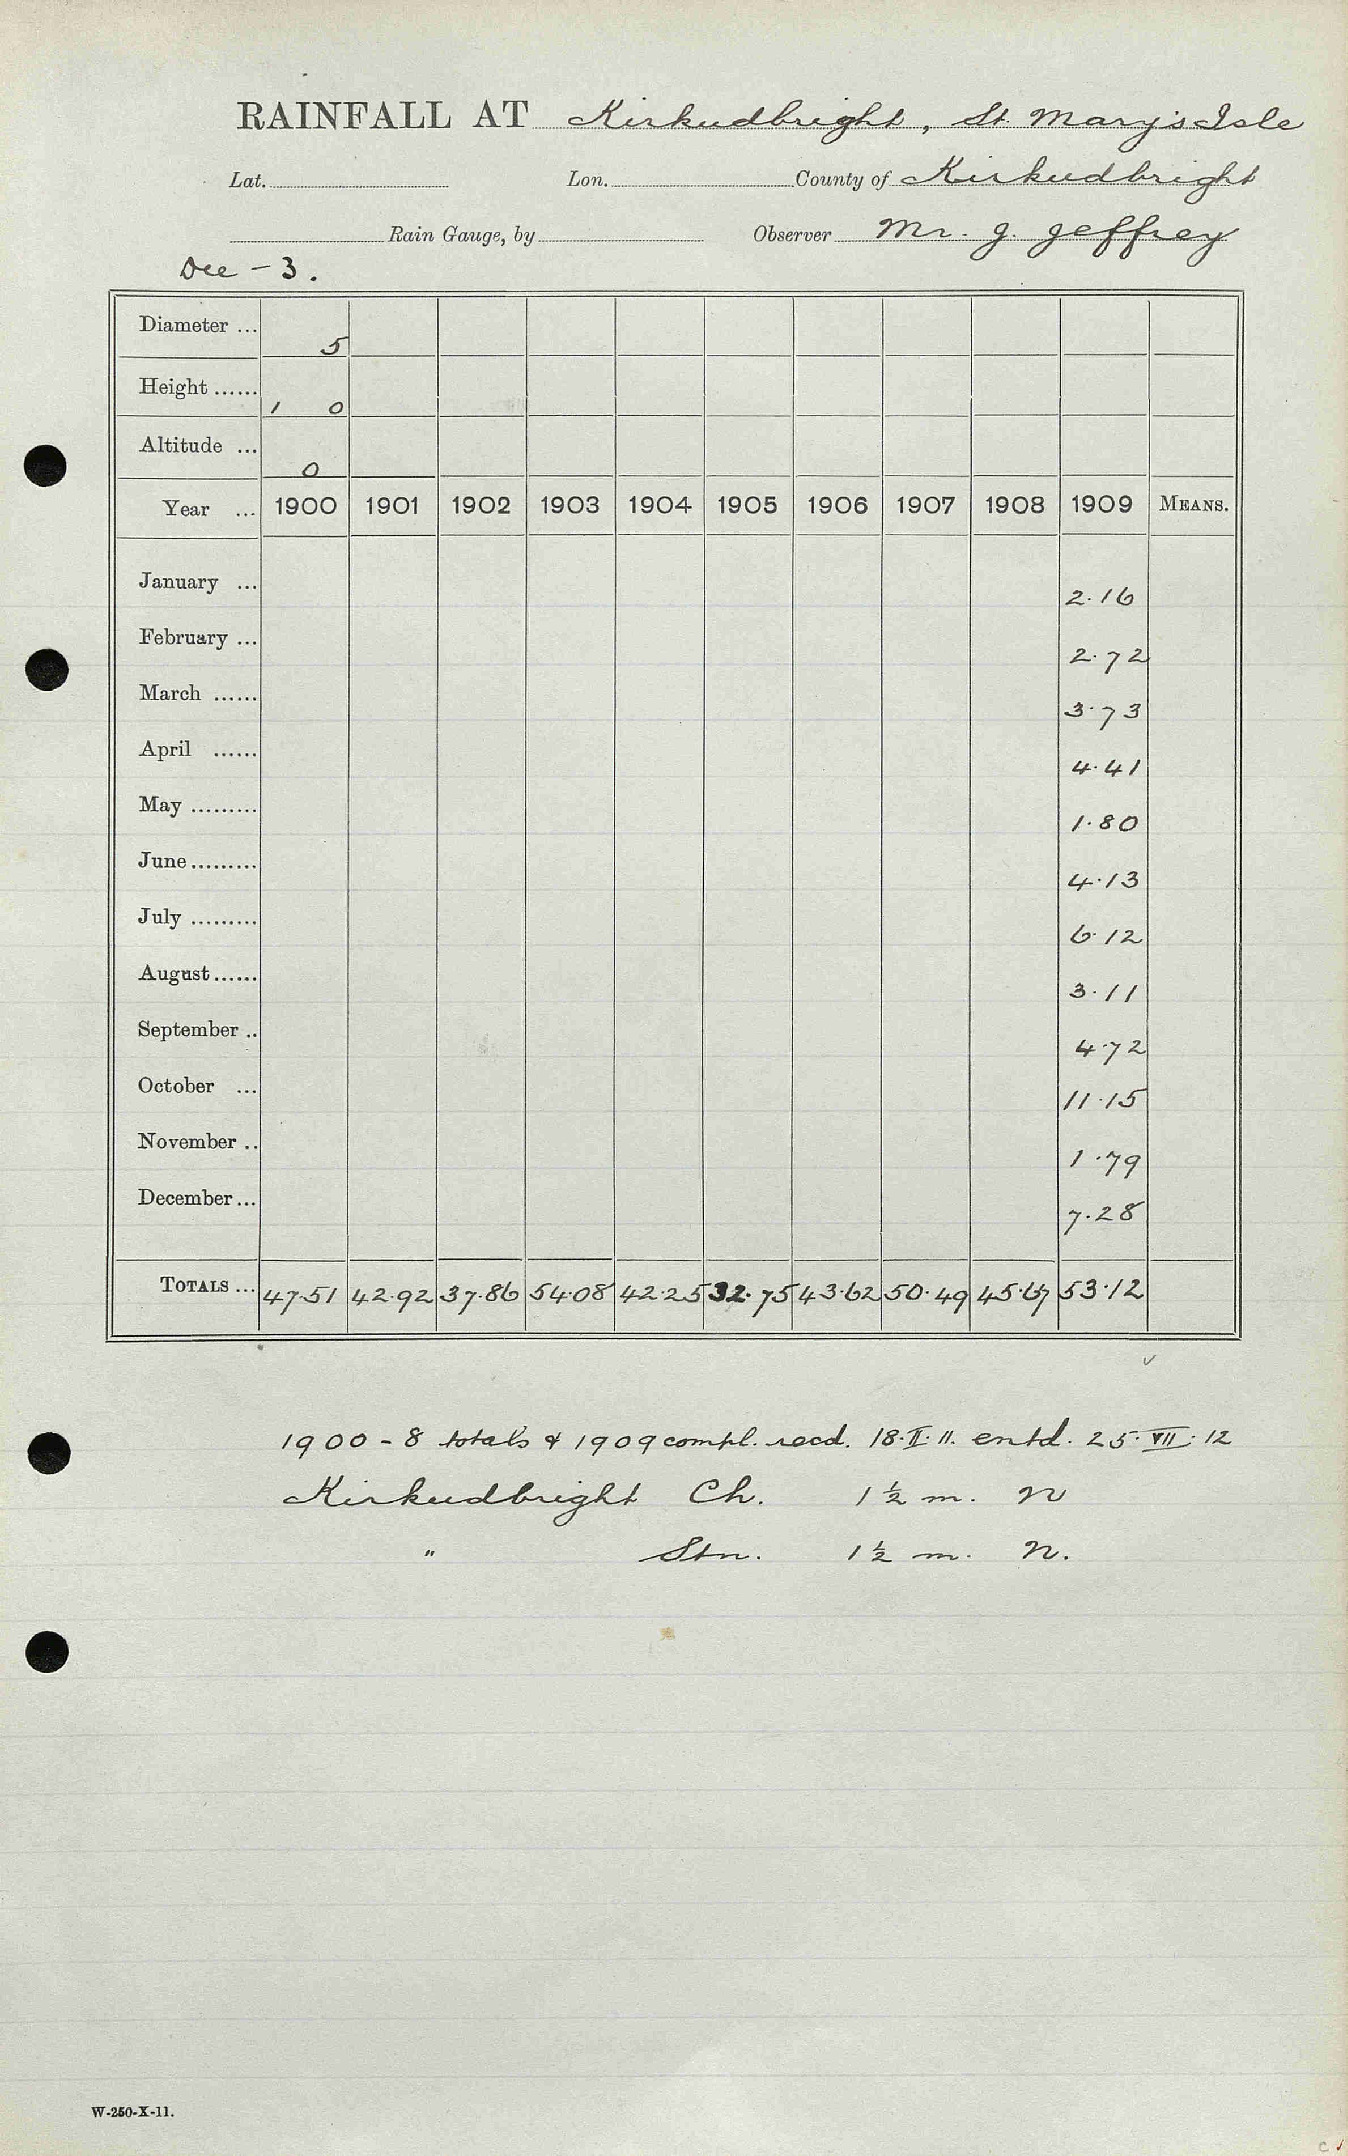 RAINFALL AT Kirkudbright, St Mary's Isle
Lat. Lon. County of Kirkudbright
Rain Gauge, by Observer Mr. G. Jeffrey
Dee - 3.
Diameter ... 5
Height ...... 1 0
Altitude ... 0
Year ... 1900 1901 1902 1903 1904 1905 1906 1907 1908 1909 MEANS.
January ... 2.16
February ... 2.72
March ...... 3.73
April ...... 4.41
May ......... 1.80
June ......... 4.13
July ......... 6.12
August ...... 3.11
September .. 4.72
October ... 11.15
November .. 1.79
December ... 7.28
TOTALS ... 47.51 42.92 37.86 54.08 42.25 32.75 43.62 50.49 45.67 53.12
1900-8 totals & 1909 compl. recd. 18.II.11. entd. 25.VII.12
Kirkudbright Ch. 1½ m. N
" Stn. 1½ m. N.
W-250-X-11.